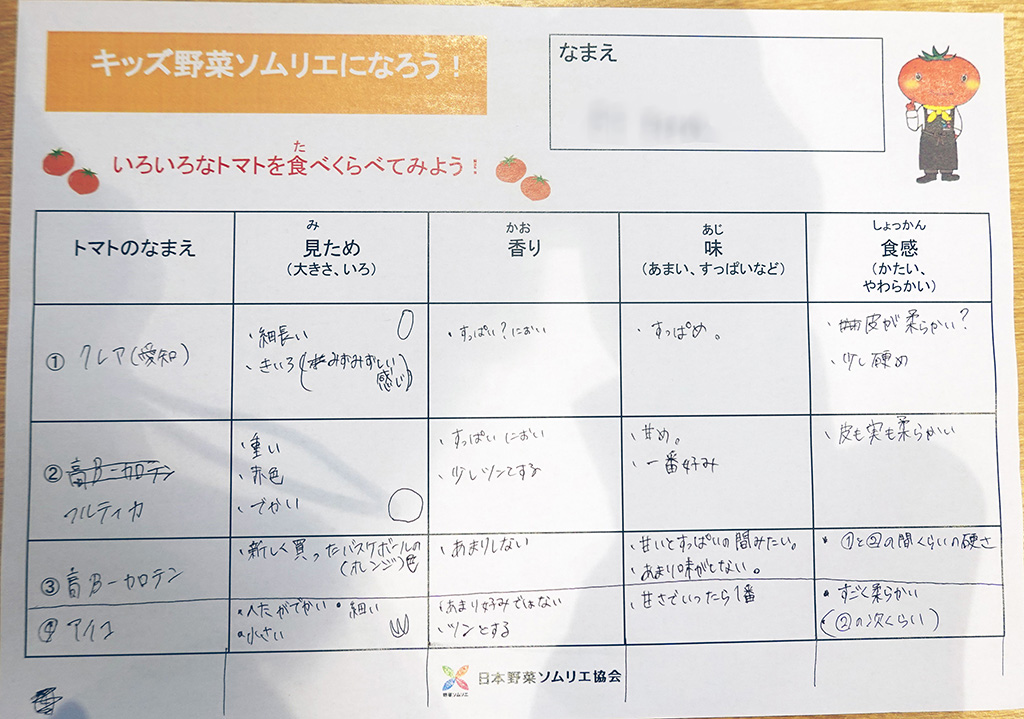 キッズ野菜ソムリエになろう！
なまえ
た
いろいろなトマトを食べくらべてみよう！
トマトのなまえ
み
見ため
（大きさ、いろ）
かお
香り
あじ
味
（あまい、すっぱいなど）
しょっかん
食感
（かたい、
やわらかい）
① クレア(愛知)
・細長い
・きいろ(みずみずしい
感じ)
・すっぱい?におい
・すっぱめ。
・皮が柔らかい?
・少し硬め
② 高B-カロテン
フルティカ
・重い
・赤色
・でかい
・すっぱいにおい
・少しツンとする
・甘め。
・一番好み
・皮も実も柔らかい
③ 高B-カロテン
・新しく買ったバスケボールの
(オレンジ)色
・あまりしない
・甘いとすっぱいの間みたい。
・あまり味がしない。
・①と②の間くらいの硬さ
④ アイコ
・へたがでかい・細い
・小さい
・あまり好みではない
・ツンとする
・甘さでいったら1番
・すごく柔らかい
(②の次くらい)
野菜ソムリエ
日本野菜ソムリエ協会